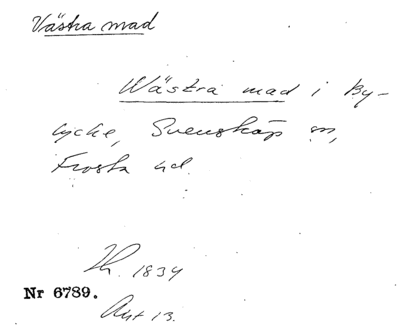 Västra mad
Wästra mad i By-
lycke, Svensköp sn,
Frosta hd.
Th. 1834
Nr 6789.
Akt 13.